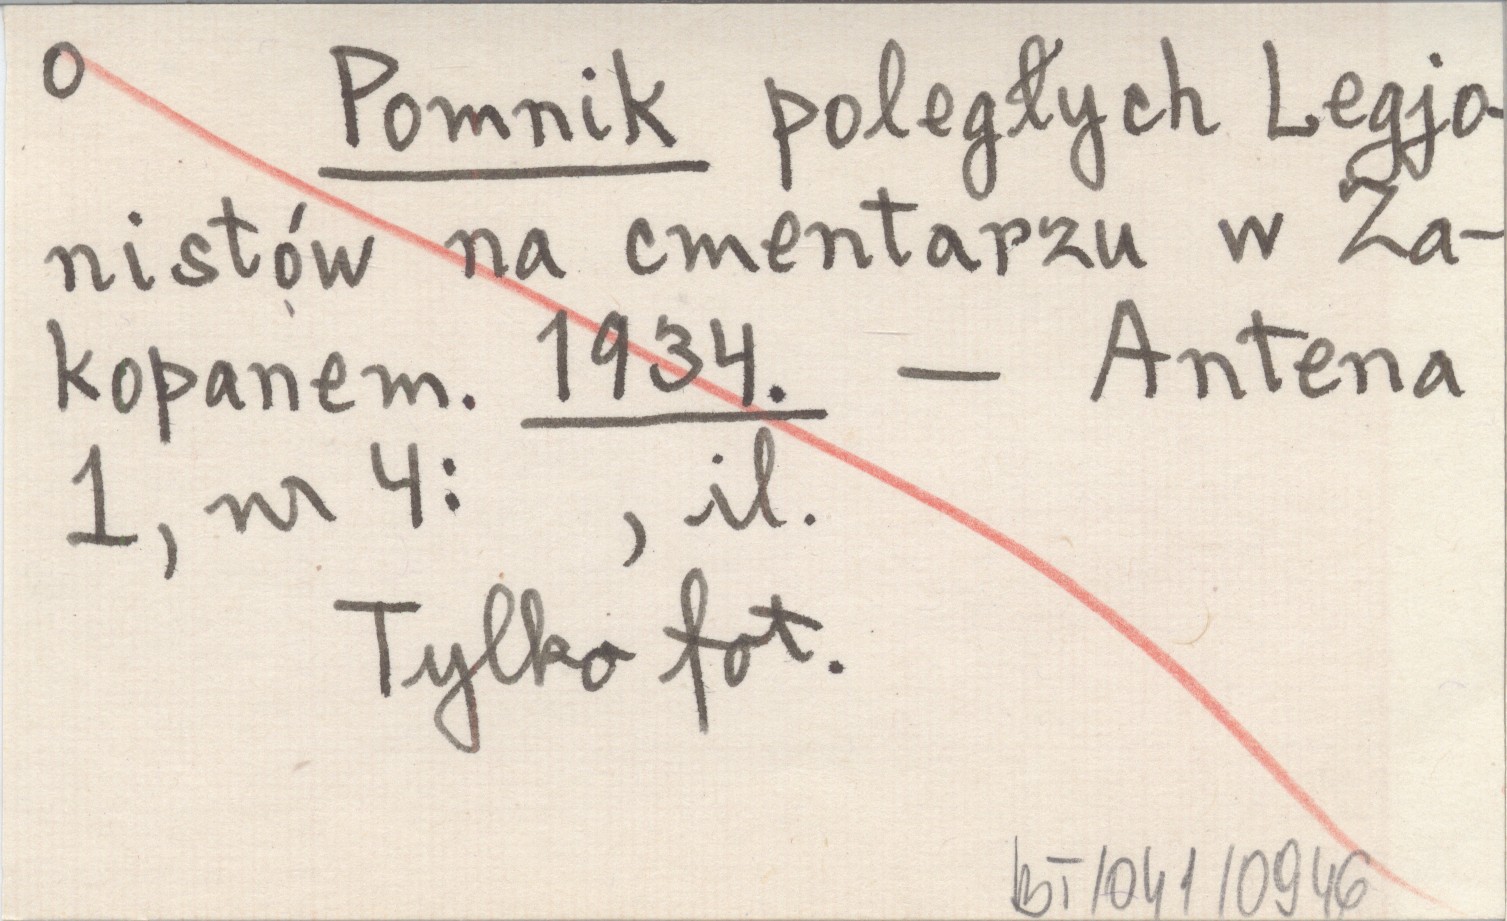 O Pomnik poległych Legjo-
nistów na cmentarzu w Za-
kopanem. 1934. — Antena
1, nr 4: , il.
Tylko fot.
BT/041/0946